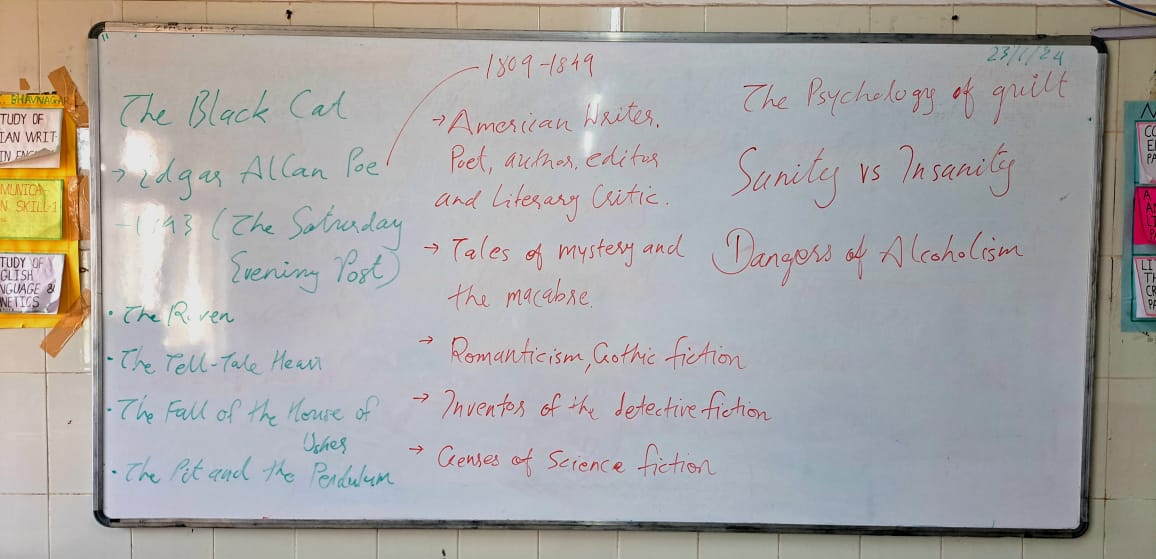 23/1/24
The Black Cat
→ Edgar Allan Poe
-1843 (The Saturday
Evening Post)
• The Raven
• The Tell-Tale Heart
• The Fall of the House of
Usher
• The Pit and the Pendulum
1809-1849
→ American Writer,
Poet, author, editor
and Literary Critic.
→ Tales of mystery and
the macabre.
→ Romanticism, Gothic fiction
→ Inventor of the detective fiction
→ Genres of Science fiction
The Psychology of guilt
Sanity vs Insanity
Dangers of Alcoholism
BHAVNAGAR
TUDY OF
IAN WRIT
IN ENG
MUNICA
N SKILL-1
TUDY OF
GLISH
NGUAGE &
NETICS